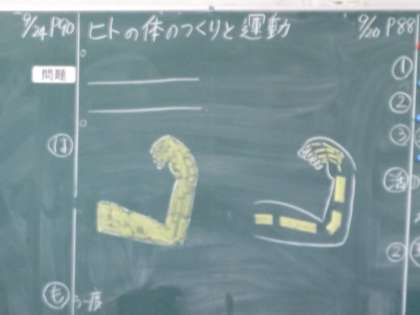 9/24 P90
ヒトの体のつくりと運動
問題
ほ
も う一度
9/20 P88
①
②
③
活
②